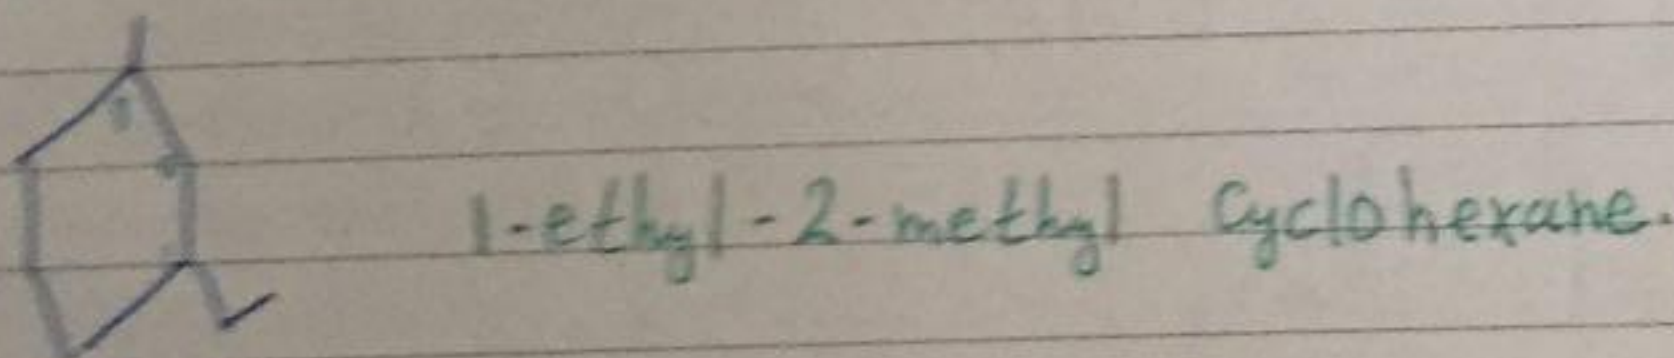 1-ethyl-2-methyl Cyclohexane.